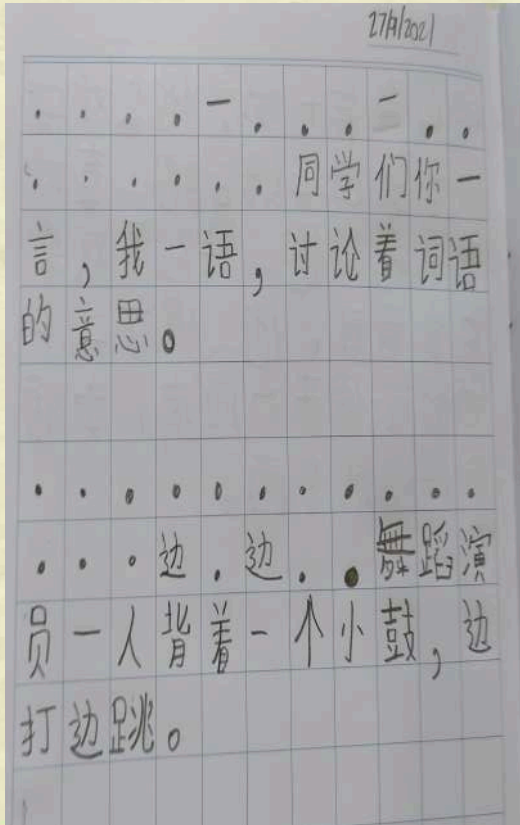 27/9/2021
····一···一··
······同学们你一
言，我一语，讨论着词语
的意思。
···········
···边·边··舞蹈演
员一人背着一个小鼓，边
打边跳。